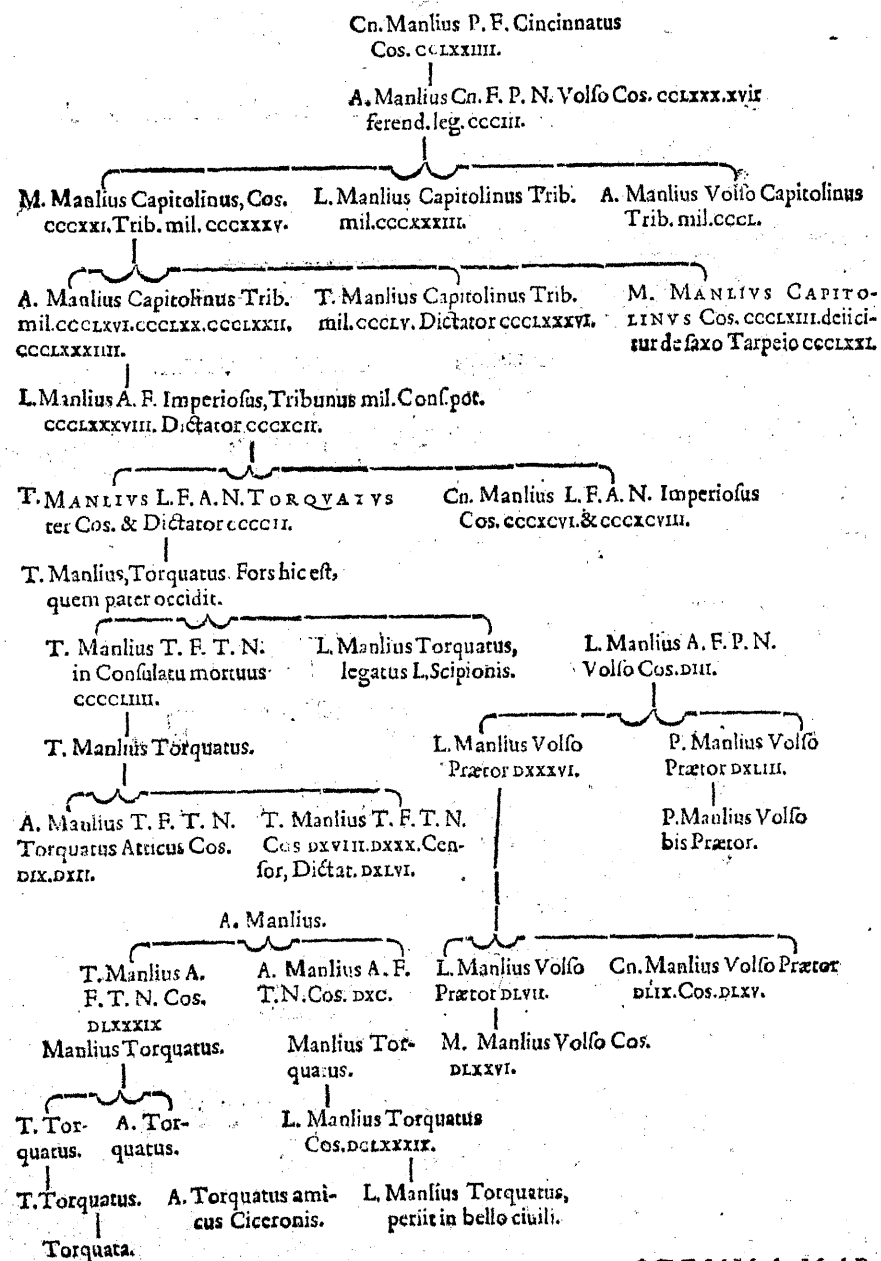 Cn. Manlius P. F. Cincinnatus
Cos. CCLXXIIII.
A. Manlius Cn. F. P. N. Volſo Cos. CCLXXX. xvir
ferend. leg. CCCIII.
M. Manlius Capitolinus, Cos.
CCCXXI. Trib. mil. CCCXXXV.
L. Manlius Capitolinus Trib.
mil. CCCXXXIII.
A. Manlius Volſo Capitolinus
Trib. mil. CCCL.
A. Manlius Capitolinus Trib.
mil. CCCLXVI. CCCLXX. CCCLXXII.
CCCLXXXIIII.
T. Manlius Capitolinus Trib.
mil. CCCLV. Dictator CCCLXXXVI.
M. MANLIVS CAPITO-
LINVS Cos. CCCLXIII. deiici-
tur de ſaxo Tarpeio CCCLXXI.
L. Manlius A. F. Imperioſus, Tribunus mil. Conſ. pot.
CCCLXXXVIII. Dictator CCCXCII.
T. MANLIVS L. F. A. N. TORQVATVS
ter Cos. & Dictator CCCCII.
Cn. Manlius L. F. A. N. Imperioſus
Cos. CCCXCVI. & CCCXCVIII.
T. Manlius, Torquatus. Fors hic eſt,
quem pater occidit.
T. Manlius T. F. T. N.
in Conſulatu mortuus
CCCCLIIII.
L. Manlius Torquatus,
legatus L. Scipionis.
L. Manlius A. F. P. N.
Volſo Cos. DIII.
T. Manlius Torquatus.
L. Manlius Volſo
Prætor DXXXVI.
P. Manlius Volſo
Prætor DXLIII.
A. Manlius T. F. T. N.
Torquatus Atticus Cos.
DIX. DXII.
T. Manlius T. F. T. N.
Cos DXVIII. DXXX. Cen-
ſor, Dictat. DXLVI.
P. Manlius Volſo
bis Prætor.
A. Manlius.
T. Manlius A.
F. T. N. Cos.
DLXXXIX
A. Manlius A. F.
T. N. Cos. DXC.
L. Manlius Volſo
Prætor DLVII.
Cn. Manlius Volſo Prætor
DLIX. Cos. DLXV.
Manlius Torquatus.
Manlius Tor-
quatus.
M. Manlius Volſo Cos.
DLXXVI.
T. Tor-
quatus.
A. Tor-
quatus.
L. Manlius Torquatus
Cos. DCLXXXIX.
T. Torquatus.
A. Torquatus ami-
cus Ciceronis.
L. Manlius Torquatus,
periit in bello ciuili.
Torquata.